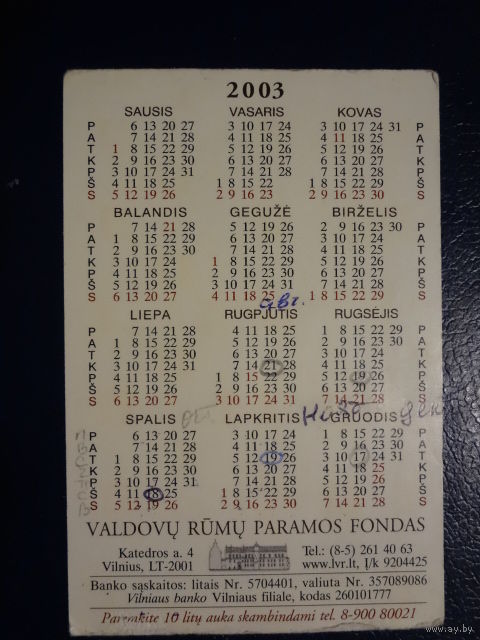 2003
SAUSIS VASARIS KOVAS
P 6 13 20 27 3 10 17 24 3 10 17 24 31 P
A 7 14 21 28 4 11 18 25 4 11 18 25 A
T 1 8 15 22 29 5 12 19 26 5 12 19 26 T
K 2 9 16 23 30 6 13 20 27 6 13 20 27 K
P 3 10 17 24 31 7 14 21 28 7 14 21 28 P
Š 4 11 18 25 1 8 15 22 1 8 15 22 29 Š
S 5 12 19 26 2 9 16 23 2 9 16 23 30 S
BALANDIS GEGUŽĖ BIRŽELIS
P 7 14 21 28 5 12 19 26 2 9 16 23 30 P
A 1 8 15 22 29 6 13 20 27 3 10 17 24 A
T 2 9 16 23 30 7 14 21 28 4 11 18 25 T
K 3 10 17 24 1 8 15 22 29 5 12 19 26 K
P 4 11 18 25 2 9 16 23 30 6 13 20 27 P
Š 5 12 19 26 3 10 17 24 31 7 14 21 28 Š
S 6 13 20 27 4 11 18 25 1 8 15 22 29 S
авг.
LIEPA RUGPJŪTIS RUGSĖJIS
P 7 14 21 28 4 11 18 25 1 8 15 22 29 P
A 1 8 15 22 29 5 12 19 26 2 9 16 23 30 A
T 2 9 16 23 30 6 13 20 27 3 10 17 24 T
K 3 10 17 24 31 7 14 21 28 4 11 18 25 K
P 4 11 18 25 1 8 15 22 29 5 12 19 26 P
Š 5 12 19 26 2 9 16 23 30 6 13 20 27 Š
S 6 13 20 27 3 10 17 24 31 7 14 21 28 S
SPALIS LAPKRITIS GRUODIS
P 6 13 20 27 3 10 17 24 1 8 15 22 29 P
A 7 14 21 28 4 11 18 25 2 9 16 23 30 A
T 1 8 15 22 29 5 12 19 26 3 10 17 24 31 T
K 2 9 16 23 30 6 13 20 27 4 11 18 25 K
P 3 10 17 24 31 7 14 21 28 5 12 19 26 P
Š 4 11 18 25 1 8 15 22 29 6 13 20 27 Š
S 5 12 19 26 2 9 16 23 30 7 14 21 28 S
VALDOVŲ RŪMŲ PARAMOS FONDAS
Katedros a. 4 Tel.: (8-5) 261 40 63
Vilnius, LT-2001 www.lvr.lt, Į/k 9204425
Banko sąskaitos: litais Nr. 5704401, valiuta Nr. 357089086
Vilniaus banko Vilniaus filiale, kodas 260101777
Paremkite 10 litų auka skambindami tel. 8-900 80021
www.ay.by